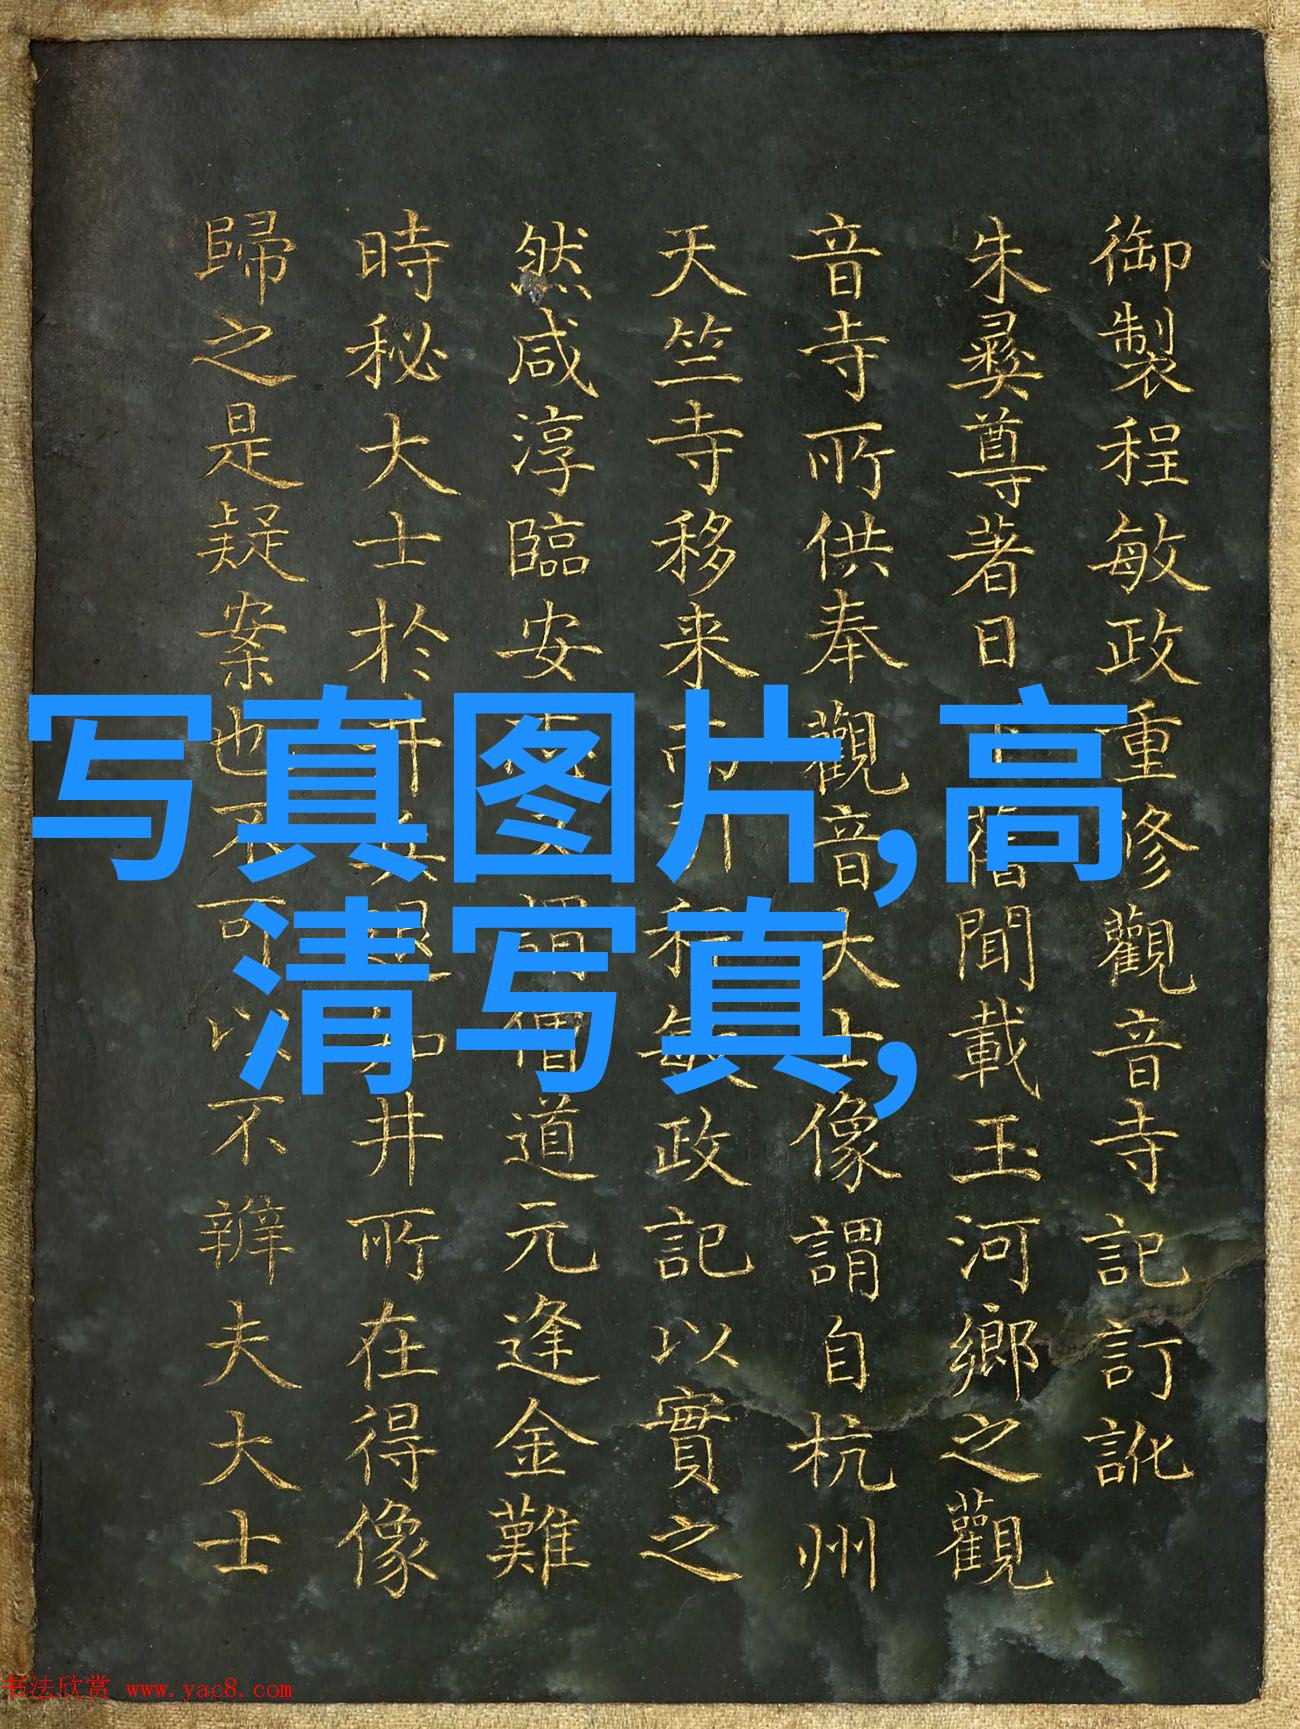 御製程敏政重修觀音寺記訂訛
朱彝尊著日下舊聞載玉河鄉之觀
音寺所供奉觀音大士像謂自杭州
天竺寺移来而引程敏政記以實之
然咸淳臨安謂僧道元逢金難
時秘大士於井退知井所在得像
歸之是疑案也不可以不辨夫大士
写真图片,高
清写真,
书法欣赏 www.yac8.com